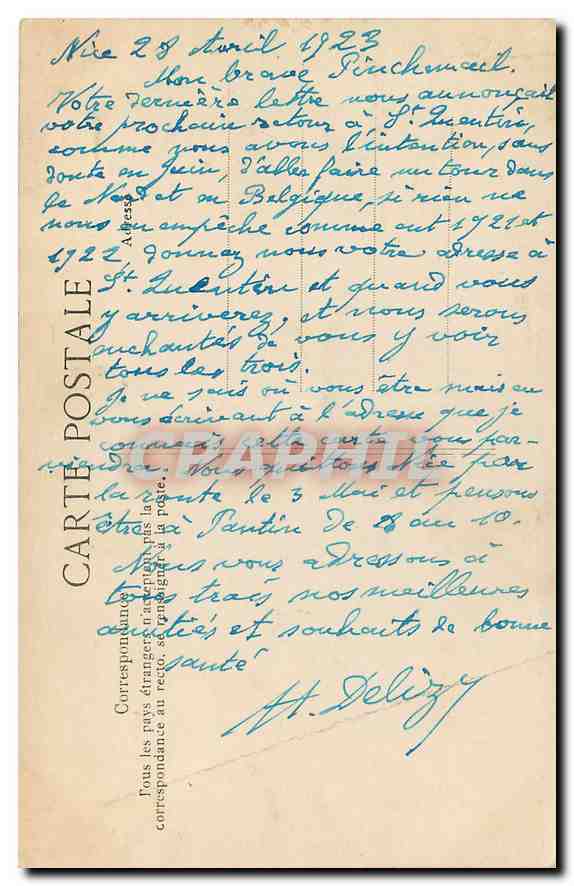 Nice 28 Avril 1923
Mon brave Pinchmail.
Votre dernière lettre nous annonçait
votre prochain retour à St Quentin,
comme nous avons l'intention, sans
doute en Juin, d'aller faire un tour dans
le Nord et en Belgique, si rien ne
nous en empêche comme ent 1921 et
1922, donnez nous votre adresse à
St Quentin et quand vous
y arriverez, et nous serons
enchantés de vous y voir
tous les trois.
Je ne sais où vous être mais en
vous écrivant à l'adresse que je
connais cette carte vous par-
viendra. Nous quittons Nice par
la route le 3 Mai et pensons
être à Pantin de 8 au 10.
Nous vous adressons à
tous trois nos meilleures
amitiés et souhaits de bonne
santé
H. Delizy
CARTE POSTALE
Correspondance
Tous les pays étrangers n'acceptent pas la
correspondance au recto. se renseigner à la poste.
Adresse
CPAPHIL